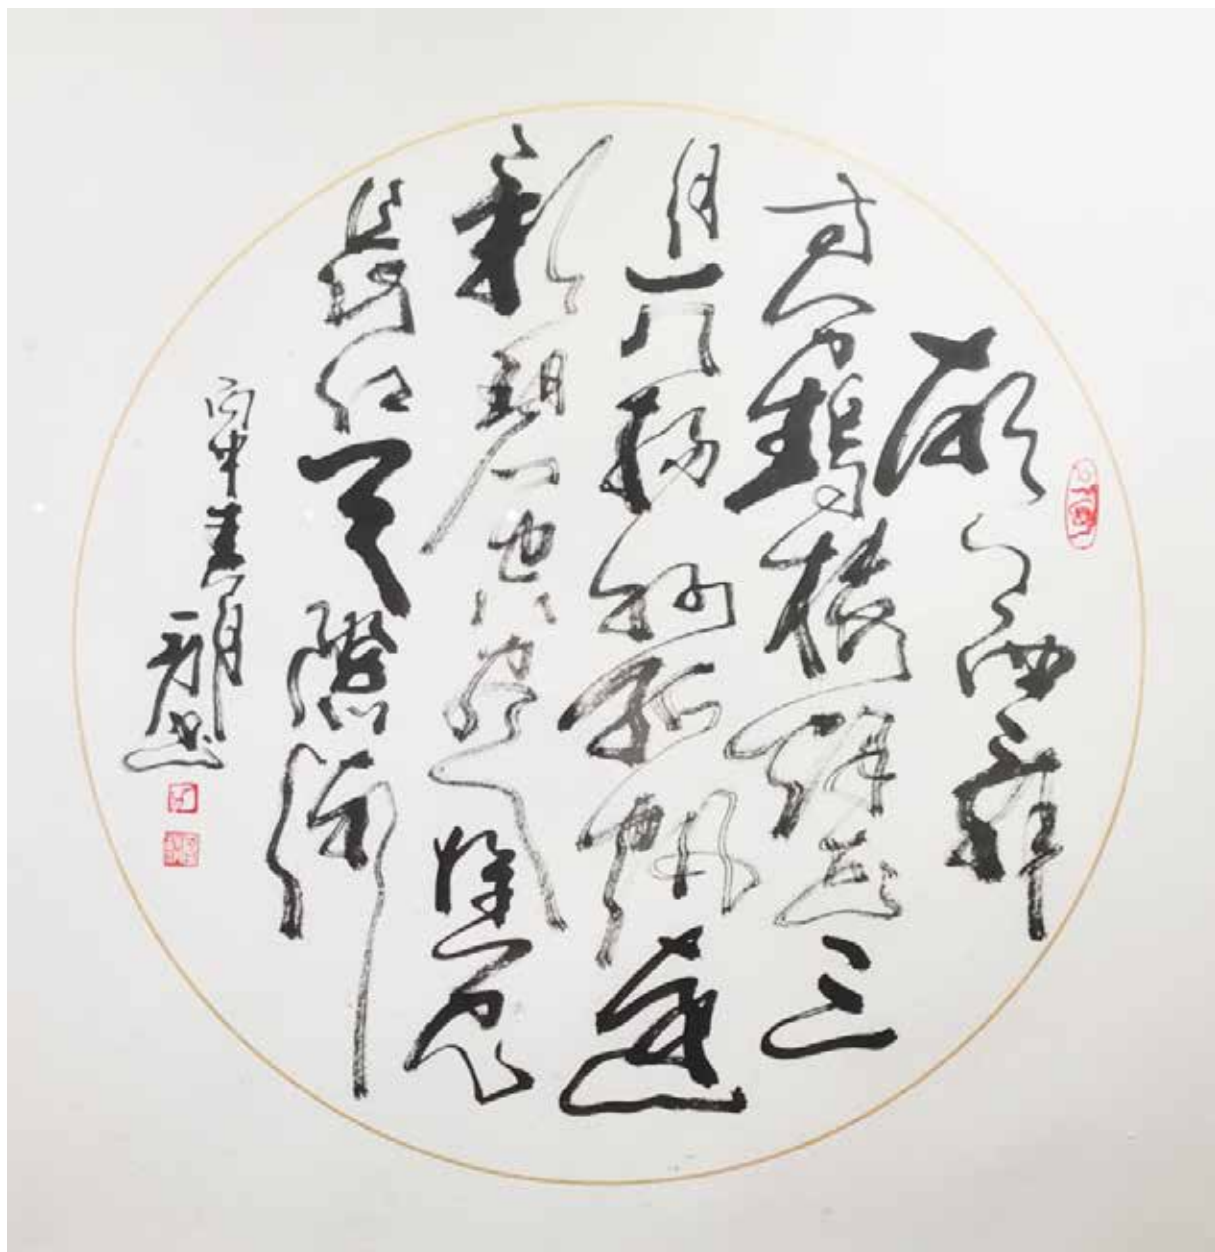 故人西辭
黄鶴樓煙花三
月下揚州孤帆遠
影碧空盡惟見
長江天際流
丙申春月